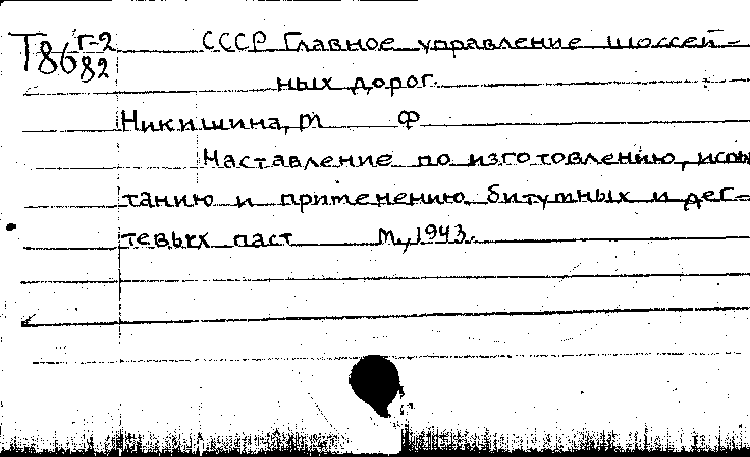 Т86 Г-2 СССР Главное управление шоссей-
82
ных дорог.
Никишина, Т Ф
Наставление по изготовлению, испы
танию и применению битумных и дег-
тевых паст М., 1943.